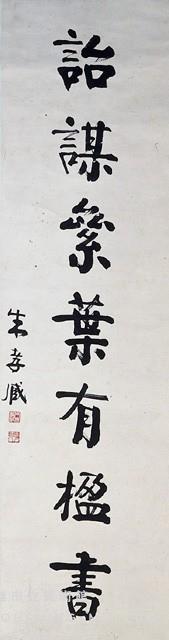 詒謀絫葉有楹書
朱孝臧